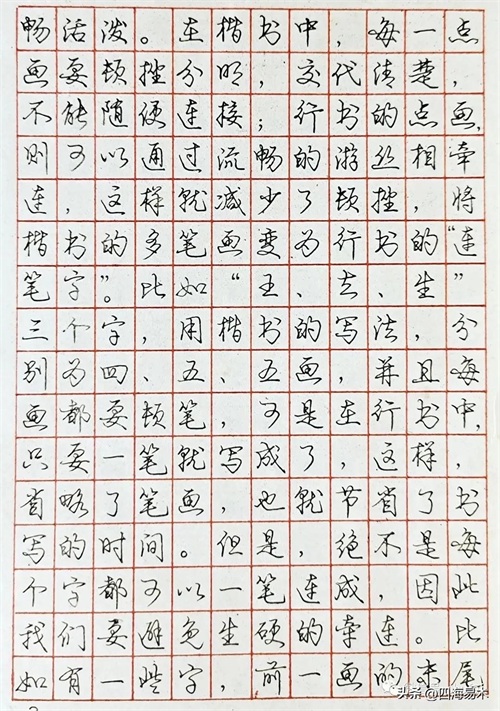 畅活泼。在楷书中，每一点
画要顿挫分明，交代清楚，
不能随便连接；行书的点画，
则可以通过流畅的游丝相牵
连，这样就减少了顿挫，将
楷书的多笔画变为行书的“连
笔字”。比如“王、去、生”
三个字，用楷书的写法，分
别为四、五、五画，并且每
画都要顿笔，可是在行书中，
只要一笔就写成了，这样，
省略了笔画，也就节省了书
写的时间。但是，绝不是每
个字都可以一笔连成，因此
我们要避免生硬的牵连。比
如有一些字，前一画的末尾
头条@四海易禾